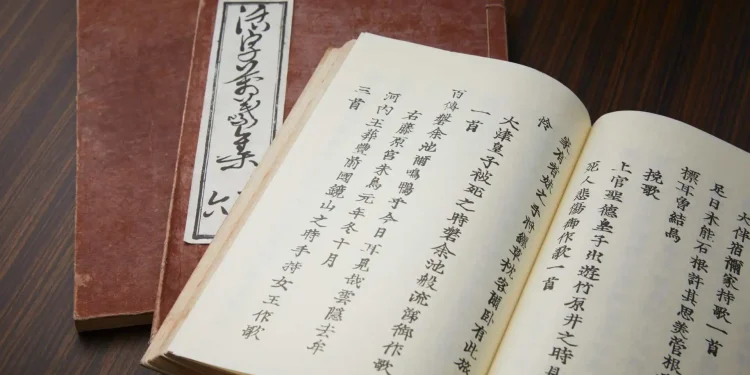 活字萬葉集 六
大伴宿禰家持歌一首
足日木能石根許其思美菅根
標耳曽結焉
挽歌
上宮聖德皇子出遊竹原井之時見
死人悲傷御作歌一首
家有者妹之手將纏草枕客爾臥有此旅
怜
大津皇子被死之時磐余池般流涕御作歌
一首
百傳磐余池爾鳴鴨乎今日耳見哉雲隱去牟
右藤原宮朱鳥元年冬十月
河內王葬豐前國鏡山之時手持女王作歌
三首